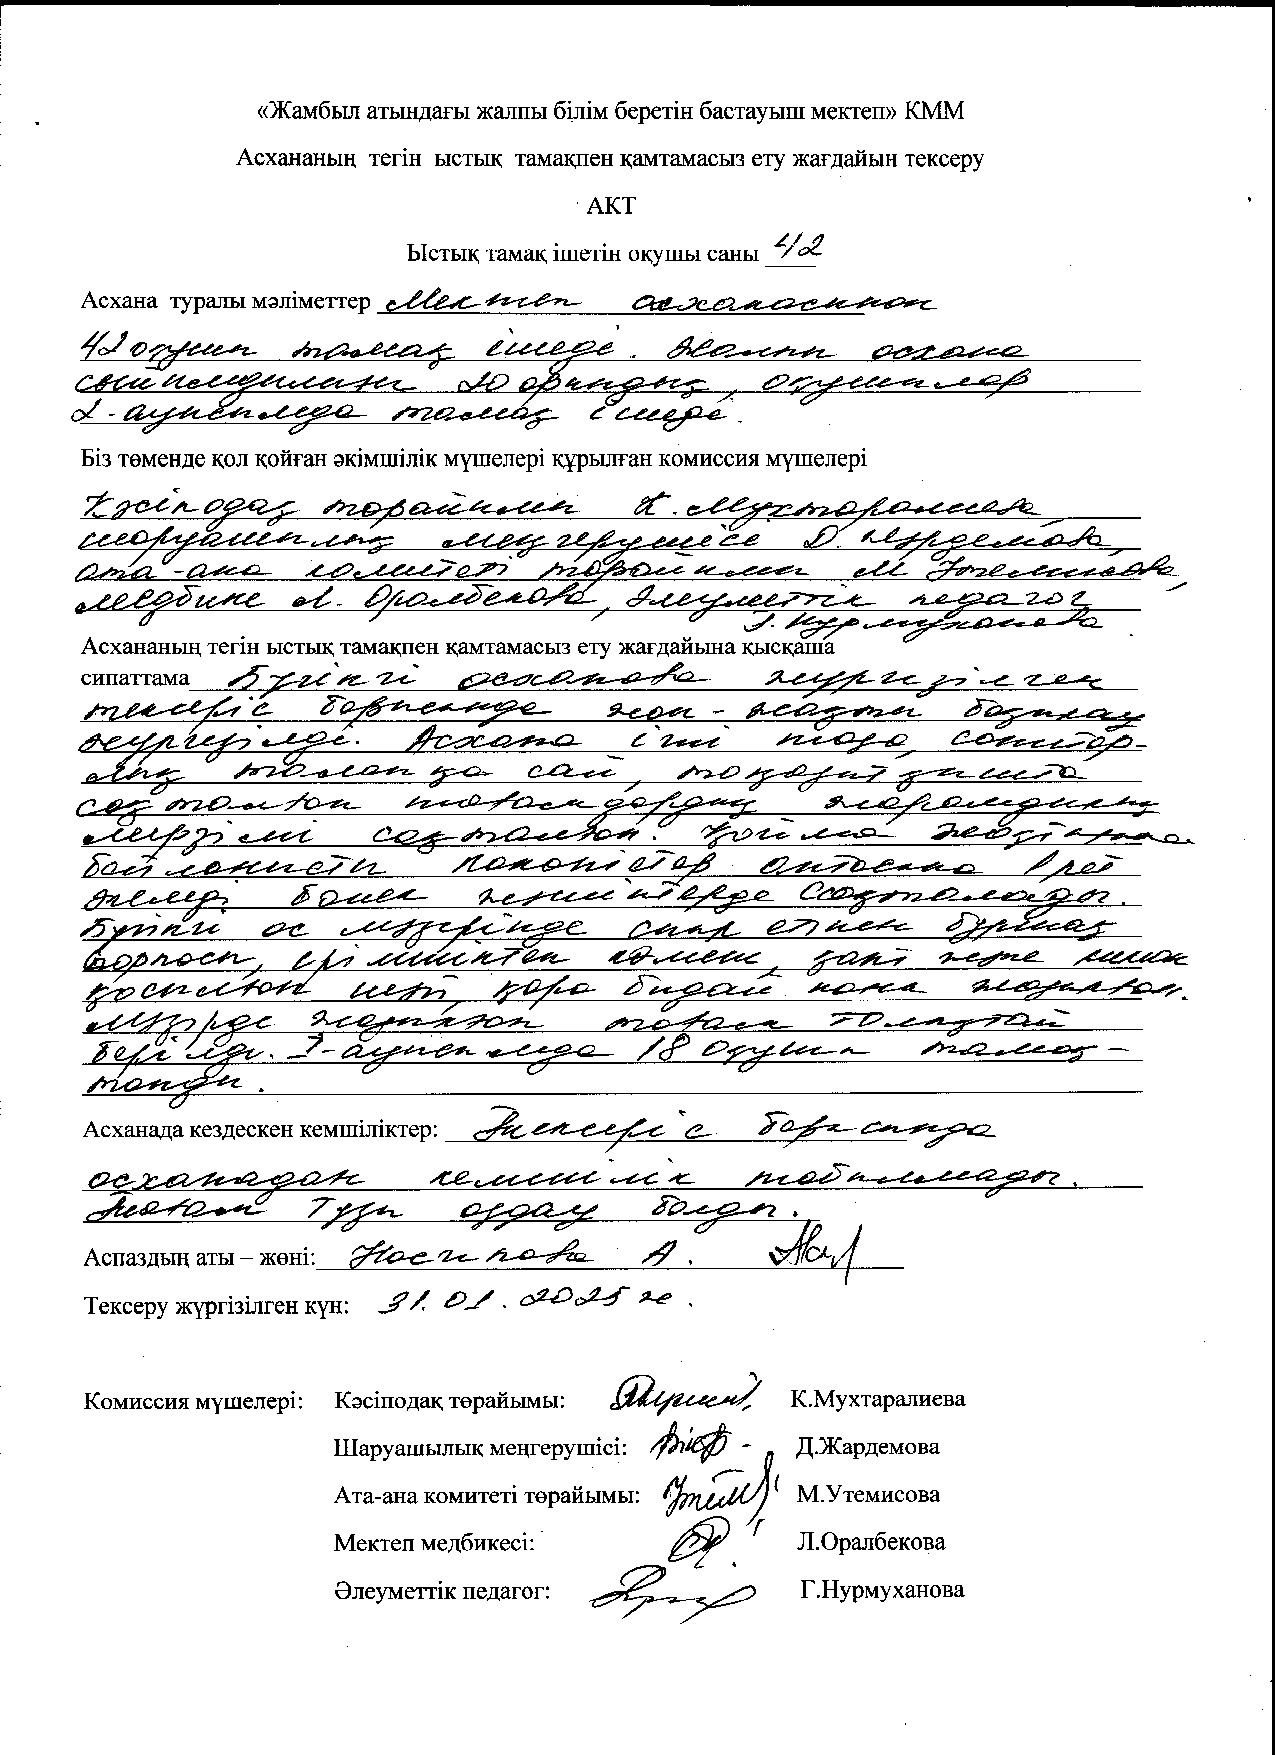 «Жамбыл атындағы жалпы білім беретін бастауыш мектеп» КММ
Асхананың тегін ыстық тамақпен қамтамасыз ету жағдайын тексеру
АКТ
Ыстық тамақ ішетін оқушы саны 42
Асхана туралы мәліметтер Мектеп асханасынан
42 оқушы тамақ ішеді. Жалпы асхана
сыйымдылығы 20 орындық, оқушылар
2-ауысымда тамақ ішеді.
Біз төменде қол қойған әкімшілік мүшелері құрылған комиссия мүшелері
Кәсіподақ төрайымы К. Мухтаралиева,
шаруашылық меңгерушісі Д. Жардемова,
ата-ана комитеті төрайымы М Утемисова,
медбике Л. Оралбекова, әлеуметтік педагог
Г. Нурмуханова
Асхананың тегін ыстық тамақпен қамтамасыз ету жағдайына қысқаша
сипаттама Бүгінгі асханаға жүргізілген
тексеріс барысында жан-жақты бақылау
жүргізілді. Асхана іші таза, санитар-
лық талапқа сай, тоңазытқышта
сақталған тағамдардың жарамдылық
мерзімі сақталған. Қойма
байланысты көкөністер аптасына 1 рет
бөлек сақталады.
Бүгінгі ас мәзірінде сиыр етінен бұршақ
көрпесі, ірімшіктен көмеш, қант және лимон
қосылған шәй, қара бидай наны жазылған.
Мәзірде жазылған тағам толықтай
берілді. 2-ауысымда 18 оқушы тамақ-
танды.
Асханада кездескен кемшіліктер: Тексеріс барысында
асханадан кемшілік табылмады.
Тағам тұзы аздау болды.
Аспаздың аты – жөні: Насипова А.
Тексеру жүргізілген күн: 31.01.2025 ж.
Комиссия мүшелері: Кәсіподақ төрайымы: К.Мухтаралиева
Шаруашылық меңгерушісі: Д.Жардемова
Ата-ана комитеті төрайымы: М.Утемисова
Мектеп медбикесі: Л.Оралбекова
Әлеуметтік педагог: Г.Нурмуханова